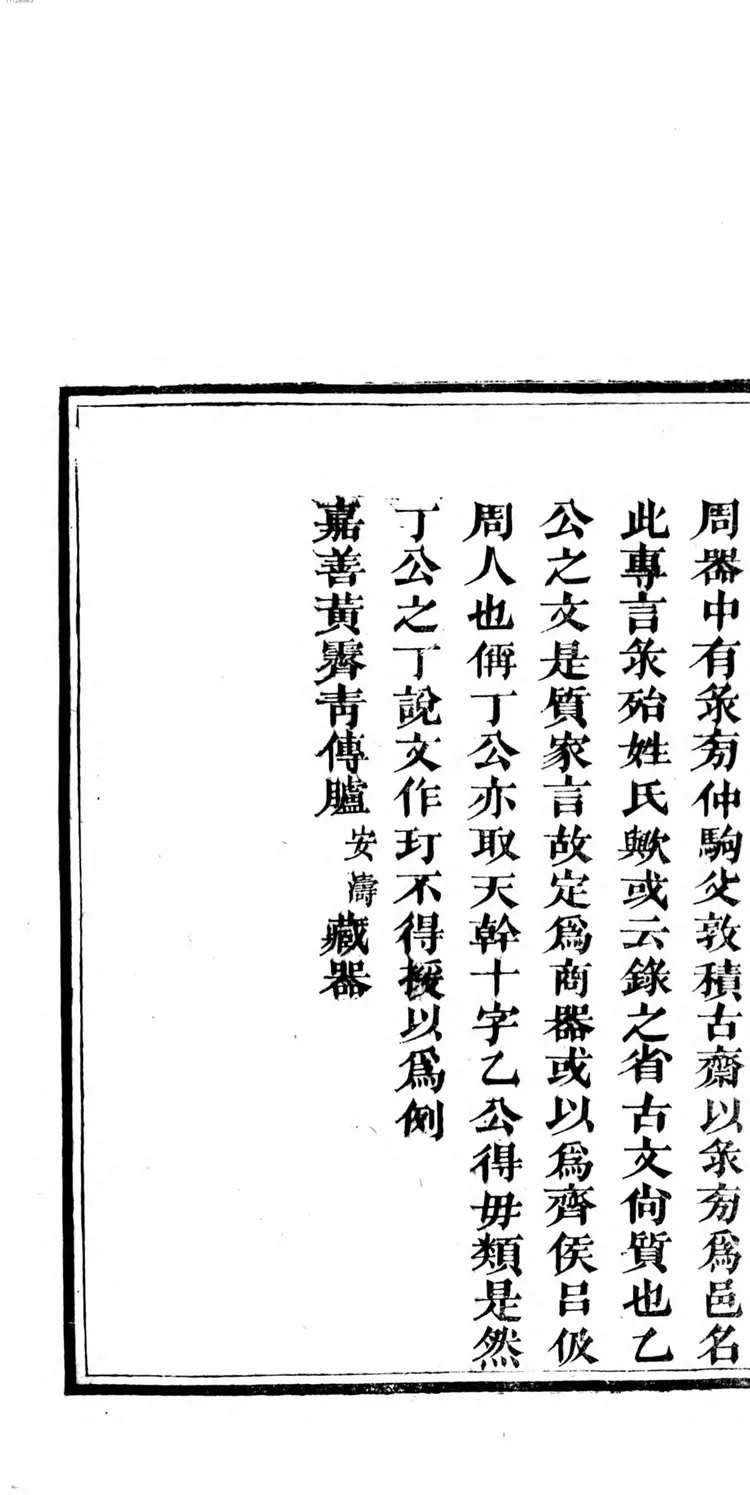 周器中有彔㫄仲駒父敦積古齋以彔㫄爲邑名
此專言彔殆姓氏歟或云錄之省古文尙質也乙
公之文是質家言故定爲商器或以爲齊侯呂伋
周人也偁丁公亦取天幹十字乙公得毋類是然
丁公之丁說文作玎不得援以爲例
嘉善黃霽靑傳臚安濤藏器